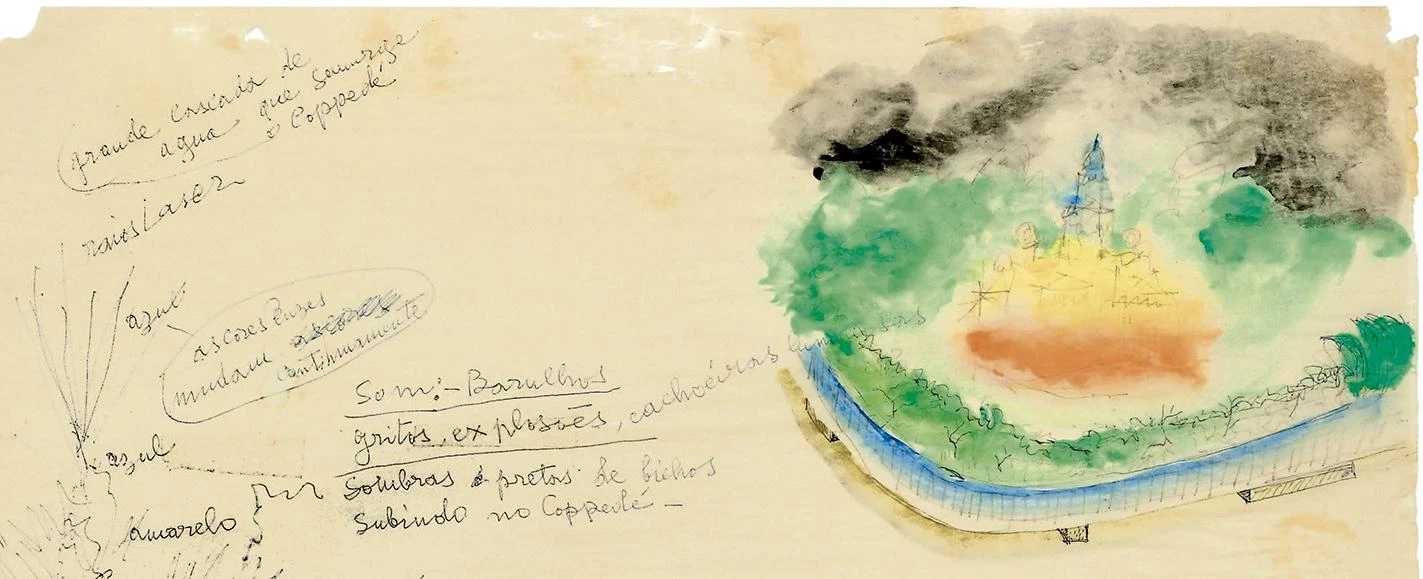 grande cascada de
agua que somrge
o Coppedé
raios laser
azul
as cores luzes
mudam as cores
continuamente
Som:- Barulhos
gritos, explosões, cachoeiras luminosas
azul
Sombras pretas de bichos
Subindo no Coppedé -
amarelo